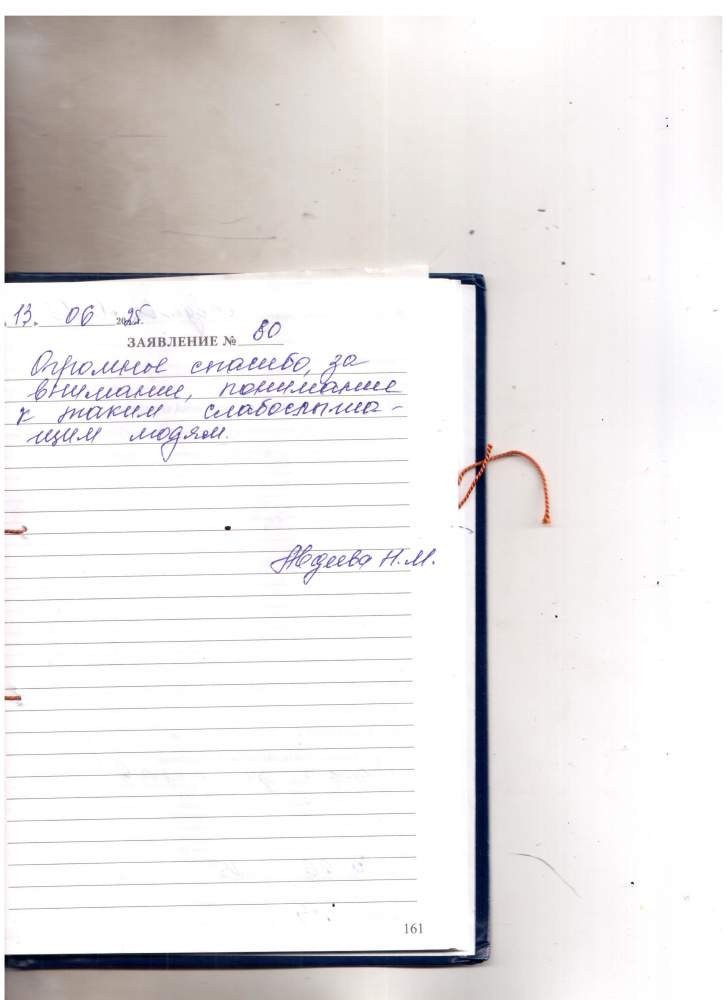 „13" 06 2025г.
ЗАЯВЛЕНИЕ № 80
Огромное спасибо, за
внимание, понимание
к таким слабослыша-
щим людям.
Авдеева Н.М.
161